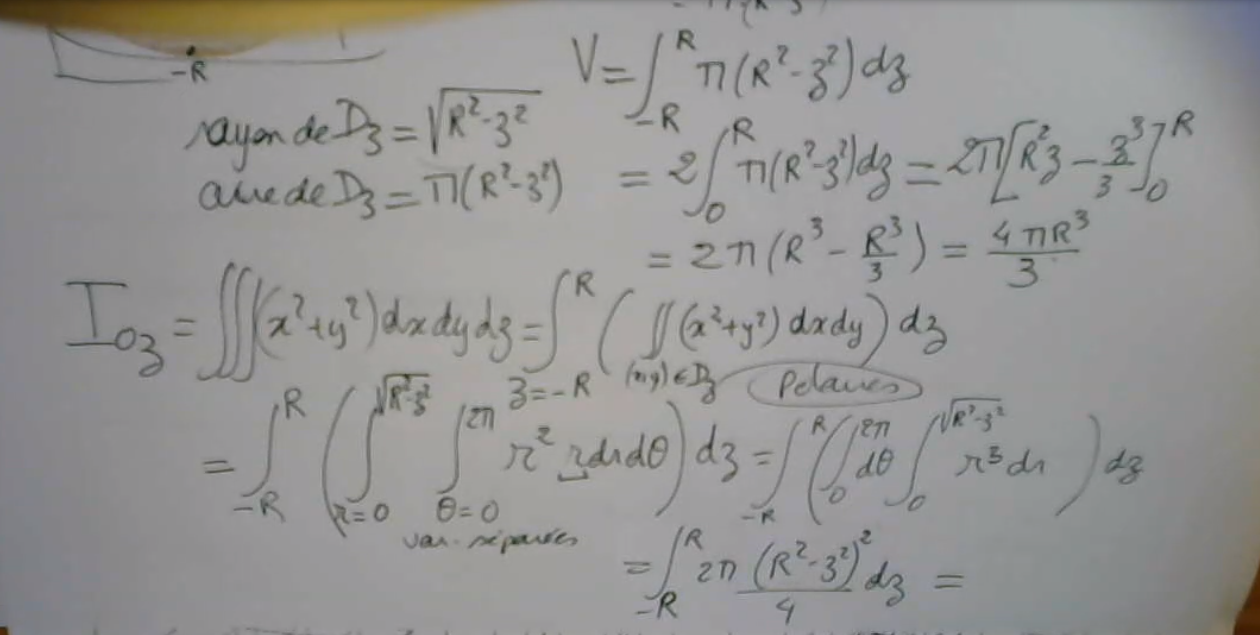 -R
V = ∫_{-R}^{R} π(R²-z²) dz
rayon de Dz = √(R²-z²)
aire de Dz = π(R²-z²)
= 2∫_0^R π(R²-z²)dz = 2π[R²z - z³/3]_0^R
= 2π(R³ - R³/3) = 4πR³/3
I_{Oz} = ∭(x²+y²)dxdydz = ∫_{z=-R}^{R} ( ∬_{(x,y)∈Dz} (x²+y²) dxdy ) dz
Polaires
= ∫_{-R}^{R} ( ∫_{r=0}^{√(R²-z²)} ∫_{θ=0}^{2π} r² rdrdθ ) dz = ∫_{-R}^{R} ( ∫_0^{2π} dθ ∫_0^{√(R²-z²)} r³ dr ) dz
var. séparées
= ∫_{-R}^{R} 2π (R²-z²)²/4 dz =